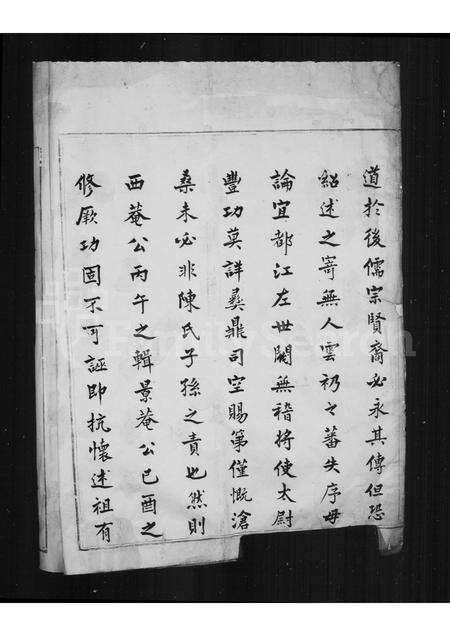 道於後儒宗賢裔必永其傳但恐
紹述之寄無人雲礽之蕃失序毋
論宜都江左世閥無稽將使太尉
豐功莫詳彝鼎司空賜第僅慨滄
桑未必非陳氏子孫之責也然則
西菴公丙午之輯景菴公己酉之
修厥功固不可誣即抗懷述祖有
FamilySearch